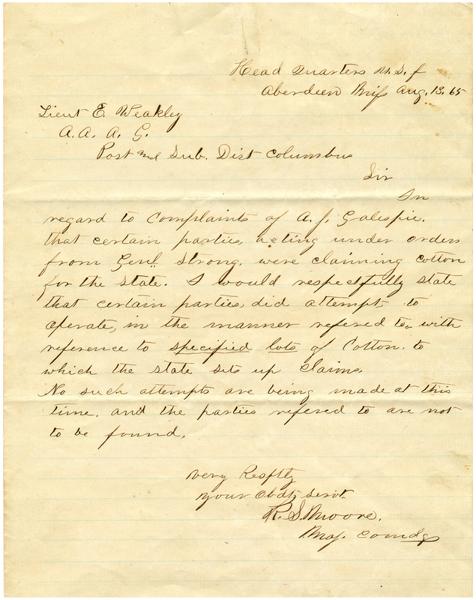 Head Quarters U.S.f
Aberdeen Miss Aug. 13. 65
Lieut E. Weakley
A. A. A. G.
Post and Sub. Dist Columbus
Sir
In
regard to Complaints of A. J. Galespie.
that certain parties, acting under orders
from Genl. Strong, were claiming cotton
for the state. I would respectfully state
that certain parties did attempt to
operate, in the manner refered to with
reference to specified lots of Cotton. to
which the state sets up Claims.
No such attempts are being made at this
time. and the parties refered to are not
to be found.
Very Respftly
Your Obdt Servt.
R. S. Moore.
Maj. Comdg